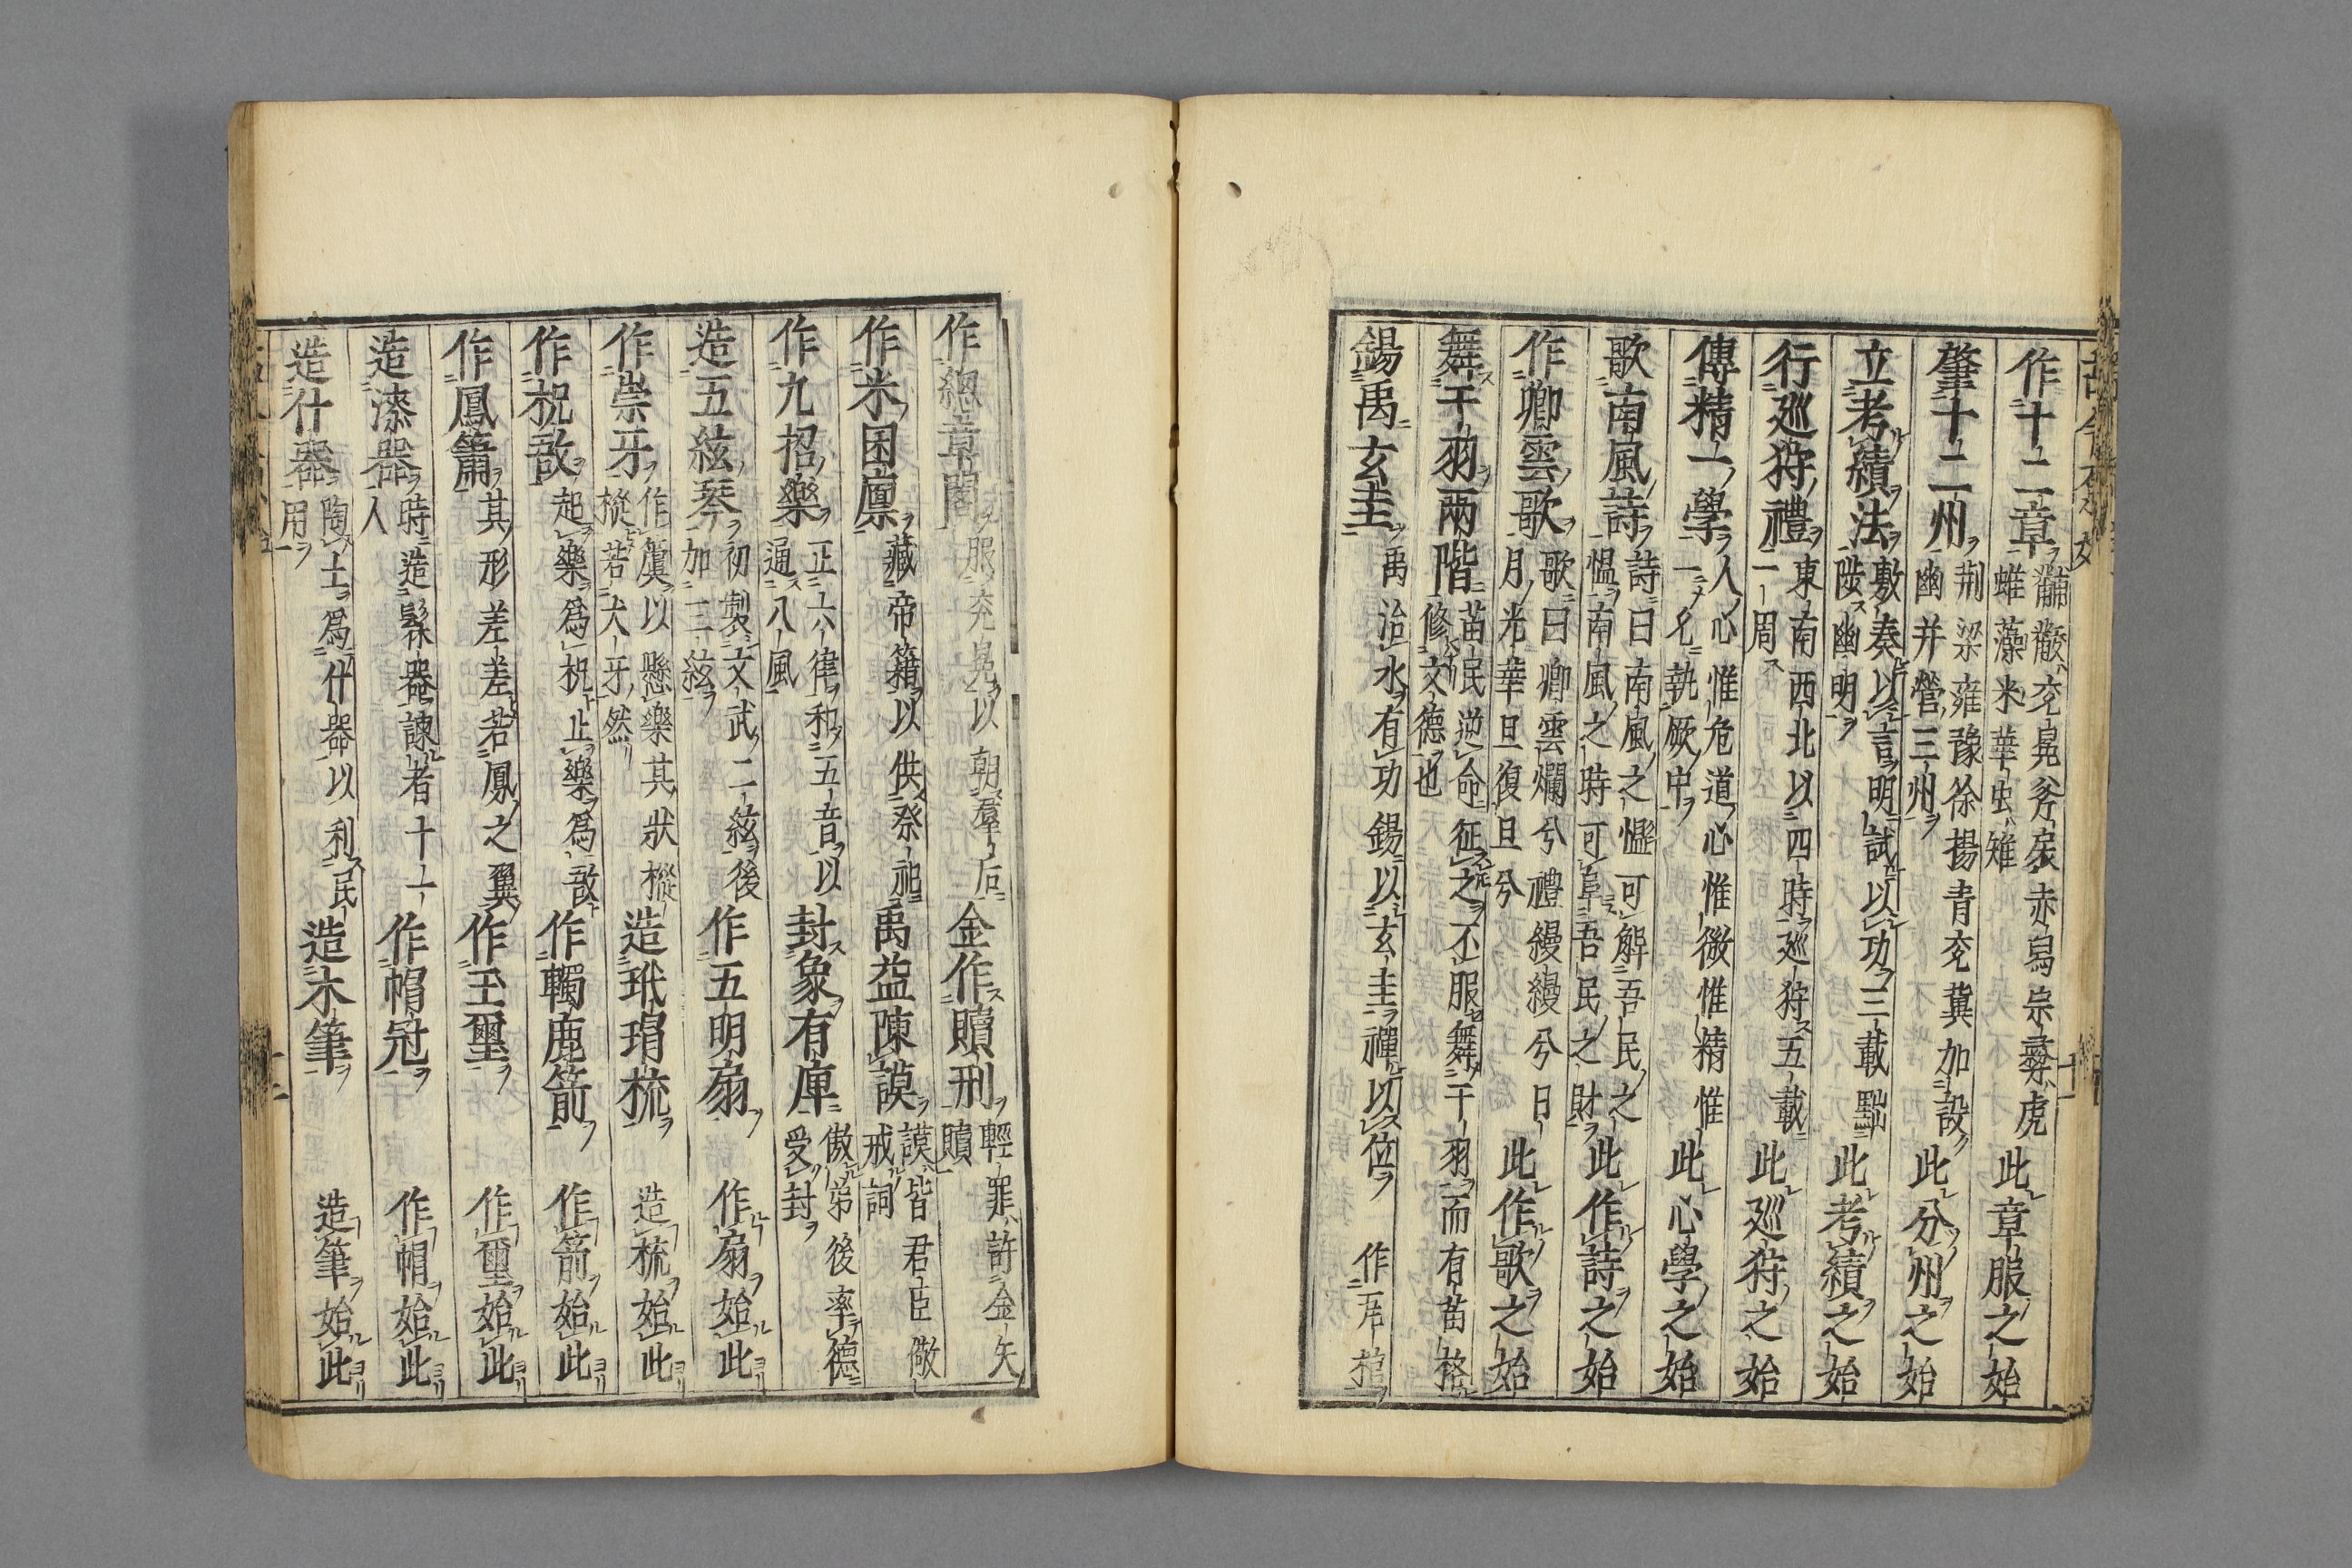 作十二章黼黻衮冕斧扆赤舄宗彝虎蜼藻米華虫雉此章服之始
肇十二州荆梁雍豫徐揚青兖冀加設幽并營三州此分州之始
立考績法敷奏以言明試以功三載黜陟幽明此考績之始
行巡狩禮東南西北以四時巡狩五載一周此巡狩之始
傳精一學人心惟危道心惟微惟精惟一允執厥中此心學之始
歌南風詩詩曰南風之慍可解吾民之慍南風之時可阜吾民之財此作詩之始
作卿雲歌歌曰卿雲爛兮禮縵縵兮日月光華旦復旦兮此作歌之始
舞干羽兩階苗民逆命征之不服舞干羽而有苗格修文德也
錫禹玄圭禹治水有功錫以玄圭禪以位 作瓦棺
作總章閣服衮冕以朝羣后 金作贖刑輕罪許金矢贖
作米囷廪藏帝籍以供祭祀 禹益陳謨謨皆君臣儆戒詞
作九招樂正六律和五音以通八風 封象有庳傲弟後率德受封
造五絃琴初製文武二絃後加三絃 作五明扇 作扇始此
作崇牙作簴以懸樂其狀樅樅若犬牙然 造玳瑁梳 造梳始此
作柷敔起樂爲柷止樂爲敔 作䡾鹿箭 作箭始此
作鳳簫其形差差若鳳之翼 作玉璽 作璽始此
造漆器時造髹器諫者十一人 作帽冠 作帽始此
造什器陶土爲什器以利民用 造木筆 造筆始此